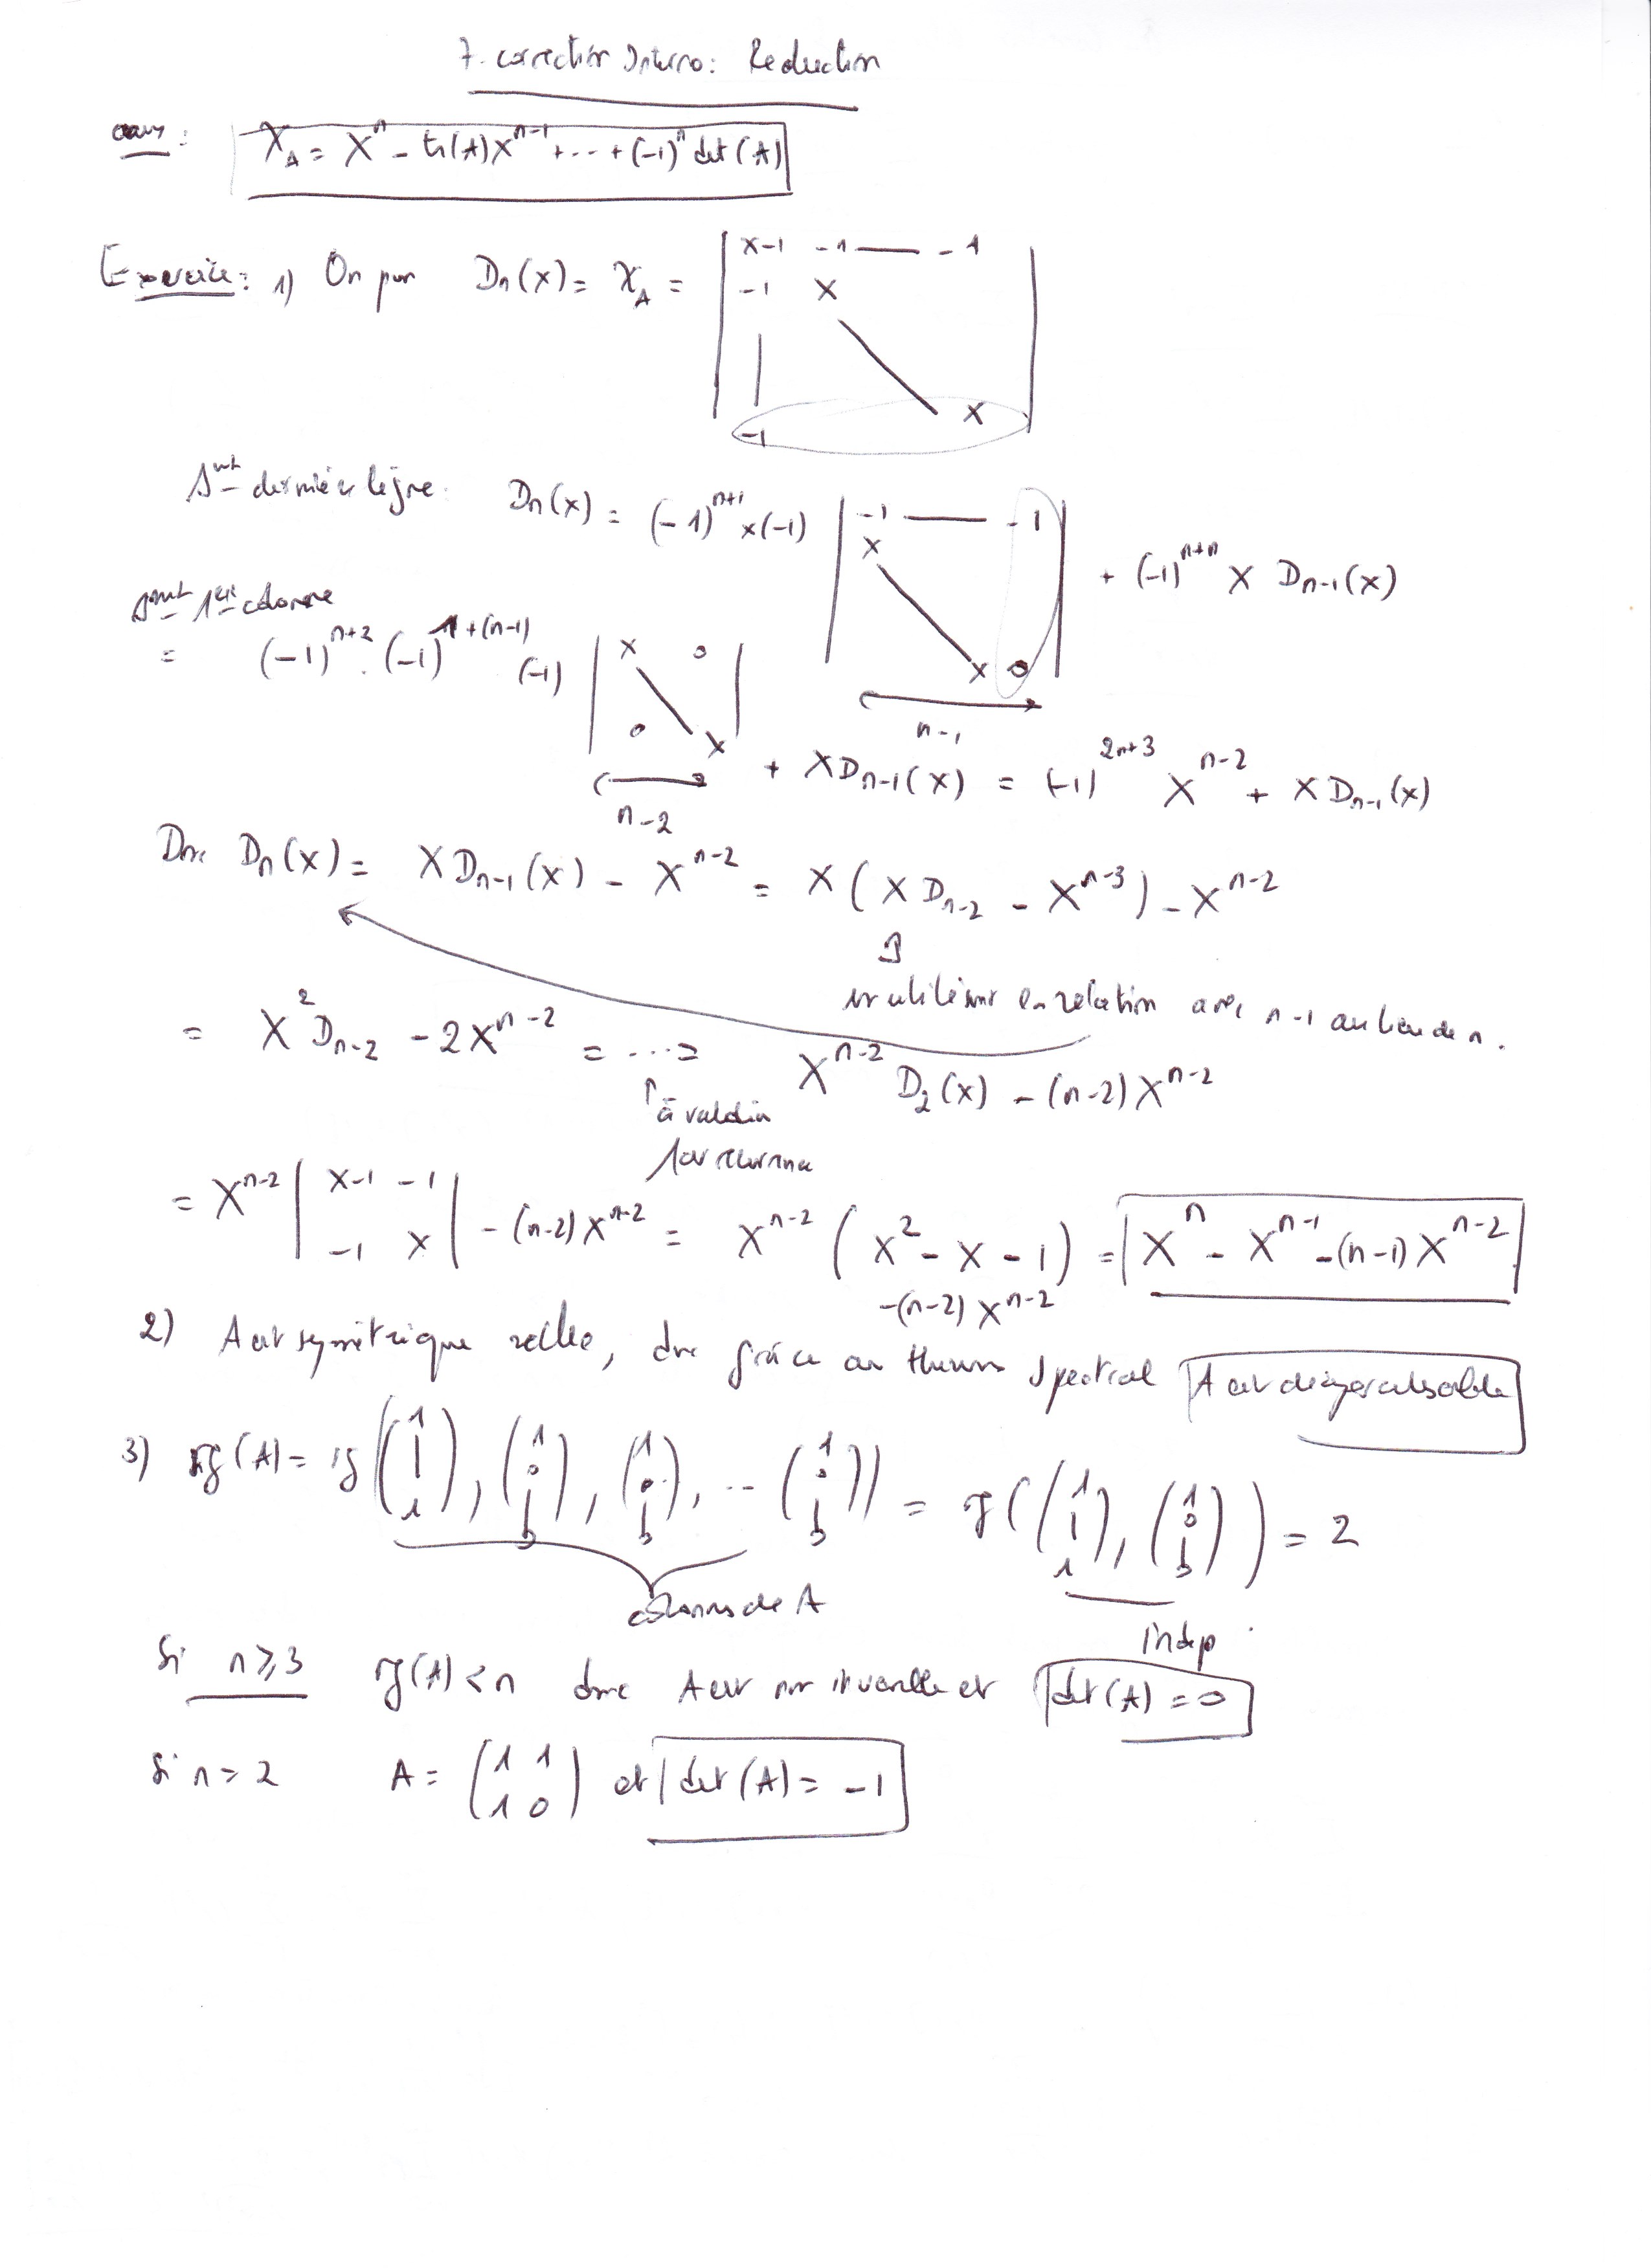 7. correction Interro : Reduction
cours : χ_A = X^n - tr(A)X^{n-1} + ... + (-1)^n det(A)
Exercice : 1) On pose D_n(x) = χ_A = | x-1 -1 — -1
-1 x
-1 x |
dernière ligne : D_n(x) = (-1)^{n+1} x(-1) | -1 — -1
x
x 0 | + (-1)^{n+n} X D_{n-1}(x)
n-1
1ère colonne
= (-1)^{n+2} . (-1)^{1+(n-1)} (-1) | x 0
0 x |
n-2
+ X D_{n-1}(x) = (-1)^{2n+3} X^{n-2} + X D_{n-1}(x)
Donc D_n(x) = X D_{n-1}(x) - X^{n-2} = X ( X D_{n-2} - X^{n-3} ) - X^{n-2}
en utilisant la relation avec n-1 au lieu de n.
= X^2 D_{n-2} - 2X^{n-2} = ... = X^{n-2} D_2(x) - (n-2) X^{n-2}
à valider
par recurrence
= X^{n-2} | x-1 -1
-1 x | - (n-2) X^{n-2} = X^{n-2} ( X^2 - X - 1 ) = X^n - X^{n-1} - (n-1) X^{n-2}
-(n-2) X^{n-2}
2) A est symétrique réelle, donc grâce au théorème spectral A est diagonalisable
3) rg(A) = rg( (1 | 1), (1 0 | 0), (1 0 | 0), ... (1 0 | 0) ) = rg( (1 | 1), (1 0 | 0) ) = 2
colonnes de A
indep
Si n ⩾ 3 rg(A) < n donc A est non inversible et det(A) = 0
Si n = 2 A = (1 1
1 0) et det(A) = -1